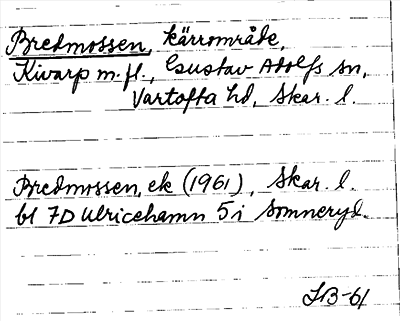 Bredmossen, kärrområde,
Kivarp m.fl., Gustav Adolfs sn,
Vartofta hd, Skar. l.
Bredmossen, ek (1961), Skar. l.
bl 7D Ulricehamn 5i Somneryd.
IB-61